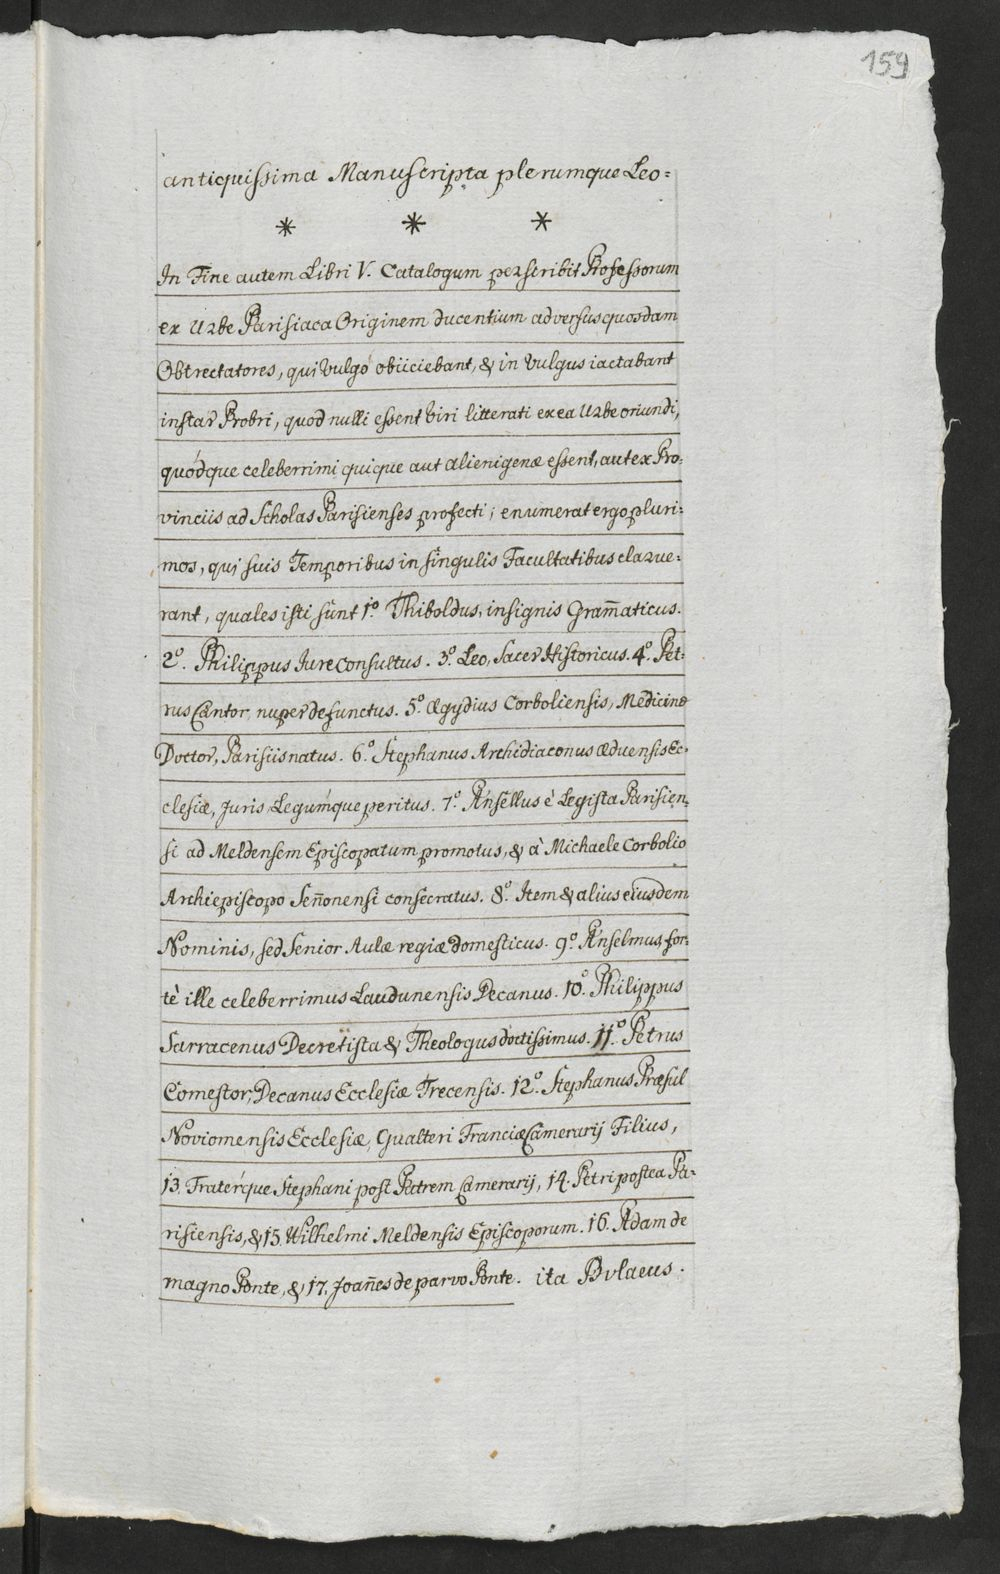 159
antiquissima Manuscripta plerumque Leo=
* * *
In Fine autem Libri V. Catalogum perscribit Professorum
ex Urbe Parisiaca Originem ducentium adversus quosdam
Obtrectatores, qui Vulgò obiiciebant, & in Vulgus iactabant
instar Probri, quod nulli essent Viri litterati ex ea Urbe oriundi,
quódque celeberrimi quique aut alienigenæ essent, aut ex Pro:
vinciis ad Scholas Parisienses profecti; enumerat ergo pluri:
mos, qui suis Temporibus in singulis Facultatibus clarue:
rant, quales isti sunt 1º. Thiboldus, insignis Gram̄aticus.
2º. Philippus Iure Consultus. 3º. Leo, Sacer Historicus. 4º. Pet:
rus Cantor nuper defunctus. 5º. Ægydius Corboliensis, Medicinæ
Doctor, Parisiis natus. 6º. Stephanus Archidiaconus Æduensis Ec:
clesiæ, Juris, Legumque peritus. 7º. Ansellus è Legista Parisien:
si ad Meldensem Episcopatum promotus, & à Michaele Corbolio
Archiepiscopo Sen̄onensi consecratus. 8º. Item & alius eiusdem
Nominis, sed Senior Aulæ regiæ domesticus. 9º. Anselmus, for:
tè ille celeberrimus Laudunensis Decanus. 10º. Philippus
Sarracenus Decretista & Theologus doctissimus. 11º. Petrus
Comestor, Decanus Ecclesiæ Trecensis. 12º. Stephanus Præsul
Noviomensis Ecclesiæ, Gualteri Franciæ Camerarij Filius,
13. Fratérque Stephani post Patrem Camerarij, 14. Petri postea Pa:
risiensis, & 15. Wilhelmi Meldensis Episcoporum. 16. Adam de
magno Ponte, & 17. Joan̄es de parvo Ponte. ita Bulaeus.